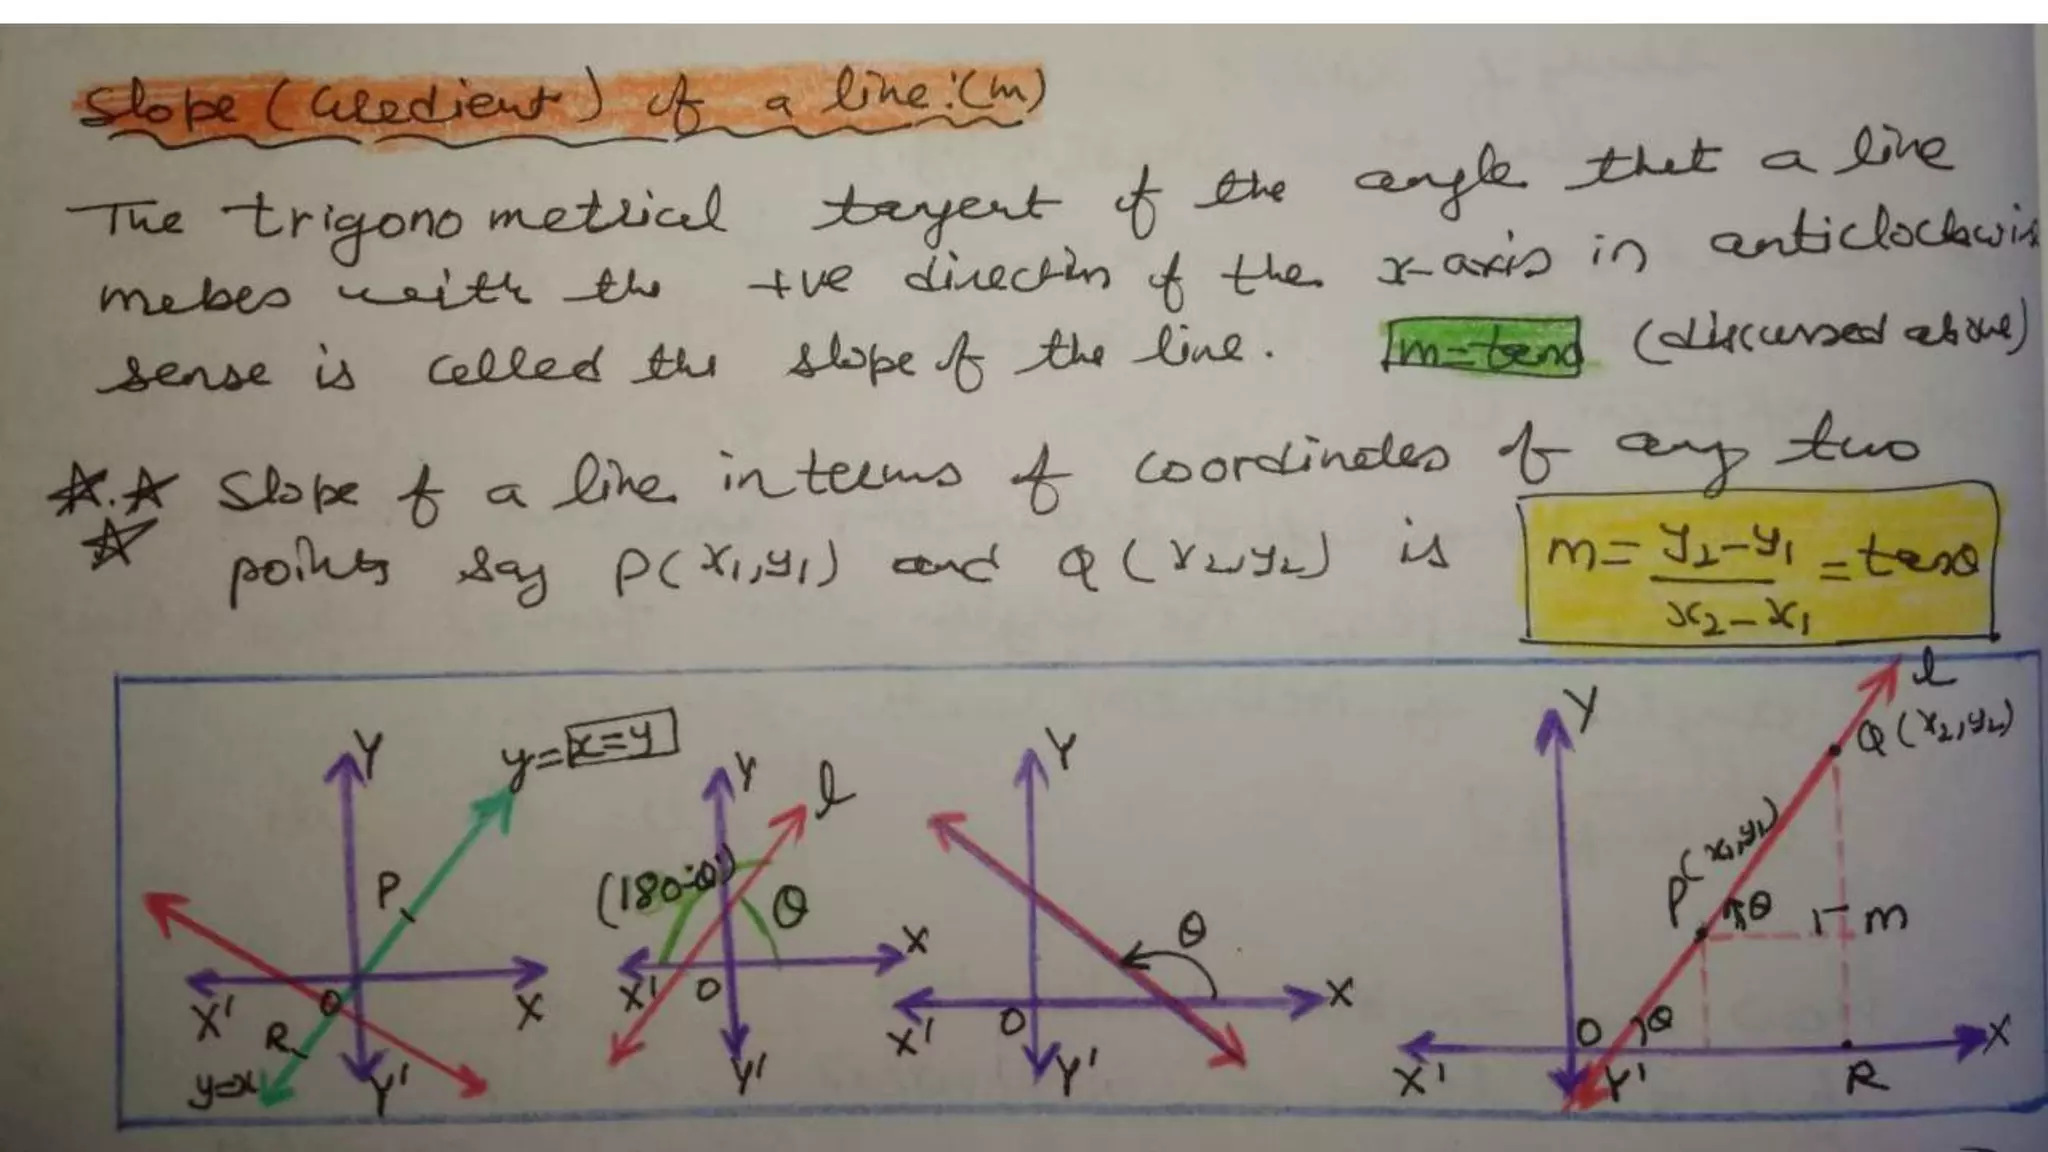 Slope (Gradient) of a line:(m)
The trigonometrical tangent of the angle that a line
makes with the +ve direction of the x-axis in anticlockwis
sense is called the slope of the line. m=tanθ (discussed above)
☆.☆ Slope of a line in terms of coordinates of any two
☆ points say P(x₁,y₁) and Q(x₂,y₂) is m = y₂-y₁ / x₂-x₁ = tanθ
Y y=x=y P X' O X R y=x Y'
Y l (180°-θ) θ X X' O Y'
Y θ X X' O Y'
Y l Q(x₂,y₂) P(x₁,y₁) θ m O θ X X' Y' R